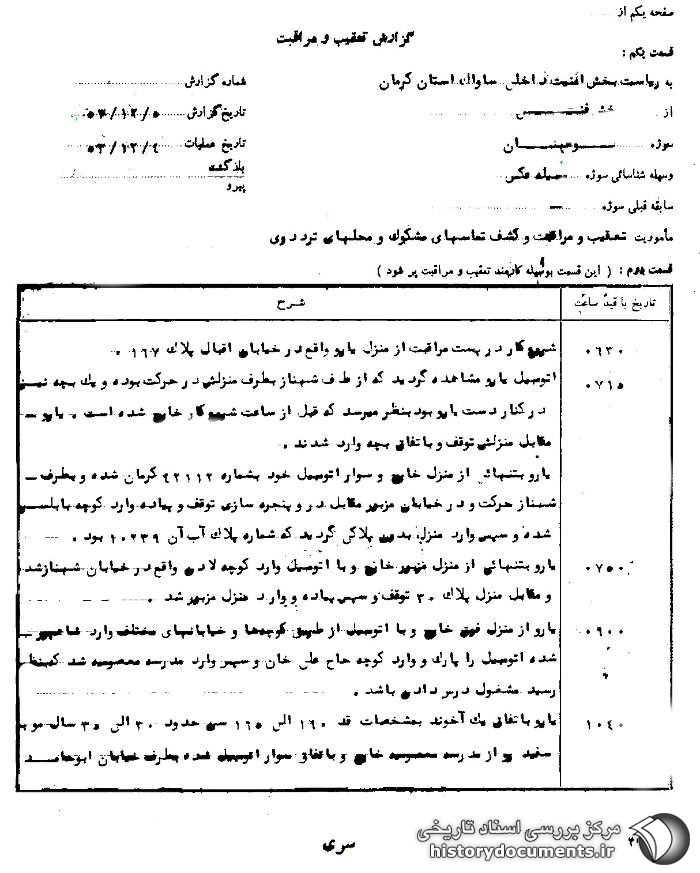 صفحه یکم از
گزارش تعقیب و مراقبت
قسمت یکم :
به ریاست بخش امنیت داخلی ساواك استان کرمان
شماره گزارش
از
تاریخ گزارش ۵۳/۱۲/۵
سوژه
تاریخ عملیات ۵۳/۱۲/۴
وسیله شناسائی سوژه وسیله عکس
بازگشت
پیرو
سابقه قبلی سوژه ـ
مأموریت تعقیب و مراقبت و کشف تماسهای مشکوك و محلهای تردد وی
قسمت دوم : ( این قسمت بوسیله کارمند تعقیب و مراقبت پر شود )
تاریخ با قید ساعت
شرح
۰۶۳۰
شروع کار در پست مراقبت از منزل یارو واقع در خیابان اقبال پلاك ۱۶۷ .
۰۷۱۵
اتومبیل یارو مشاهده گردید که از طرف شهناز بطرف منزلش در حرکت بوده و یك بچه نیز
در کنار دست یارو بود بنظر میرسد که قبل از ساعت شروع کار خارج شده است . یارو
مقابل منزلش توقف و با تفاق بچه وارد شدند .
یارو بتنهائی از منزل خارج و سوار اتومبیل خود بشماره ۴۲۱۱۲ کرمان شده و بطرف
شهناز حرکت و در خیابان مزبور مقابل در و پنجره سازی توقف و پیاده وارد کوچه
شده و سپس وارد منزل بدون پلاکی گردید که شماره پلاك آب آن ۱۰۲۳۹ بود .
۰۷۵۰
یارو بتنهائی از منزل مزبور خارج و با اتومبیل وارد کوچه لادن واقع در خیابان شهناز شد
و مقابل منزل پلاك ۳۰ توقف و سپس پیاده و وارد منزل مزبور شد .
۰۹۰۰
یارو از منزل فوق خارج و با اتومبیل از طریق کوچه‌ها و خیابانهای مختلف وارد
شده اتومبیل را پارك و وارد کوچه حاج علی خان و سپس وارد مدرسه معصومیه شد که بنظر
رسید مشغول درس دادن باشد .
۱۰۴۰
یارو با تفاق یك آخوند بمشخصات قد ۱۶۰ الی ۱۶۵ سن حدود ۳۰ الی ۳۵ سال
سفید رو از مدرسه معصومیه خارج و با تفاق سوار اتومبیل شده بطرف خیابان ابوحامد
سری
مرکز بررسی اسناد تاریخی
historydocuments.ir